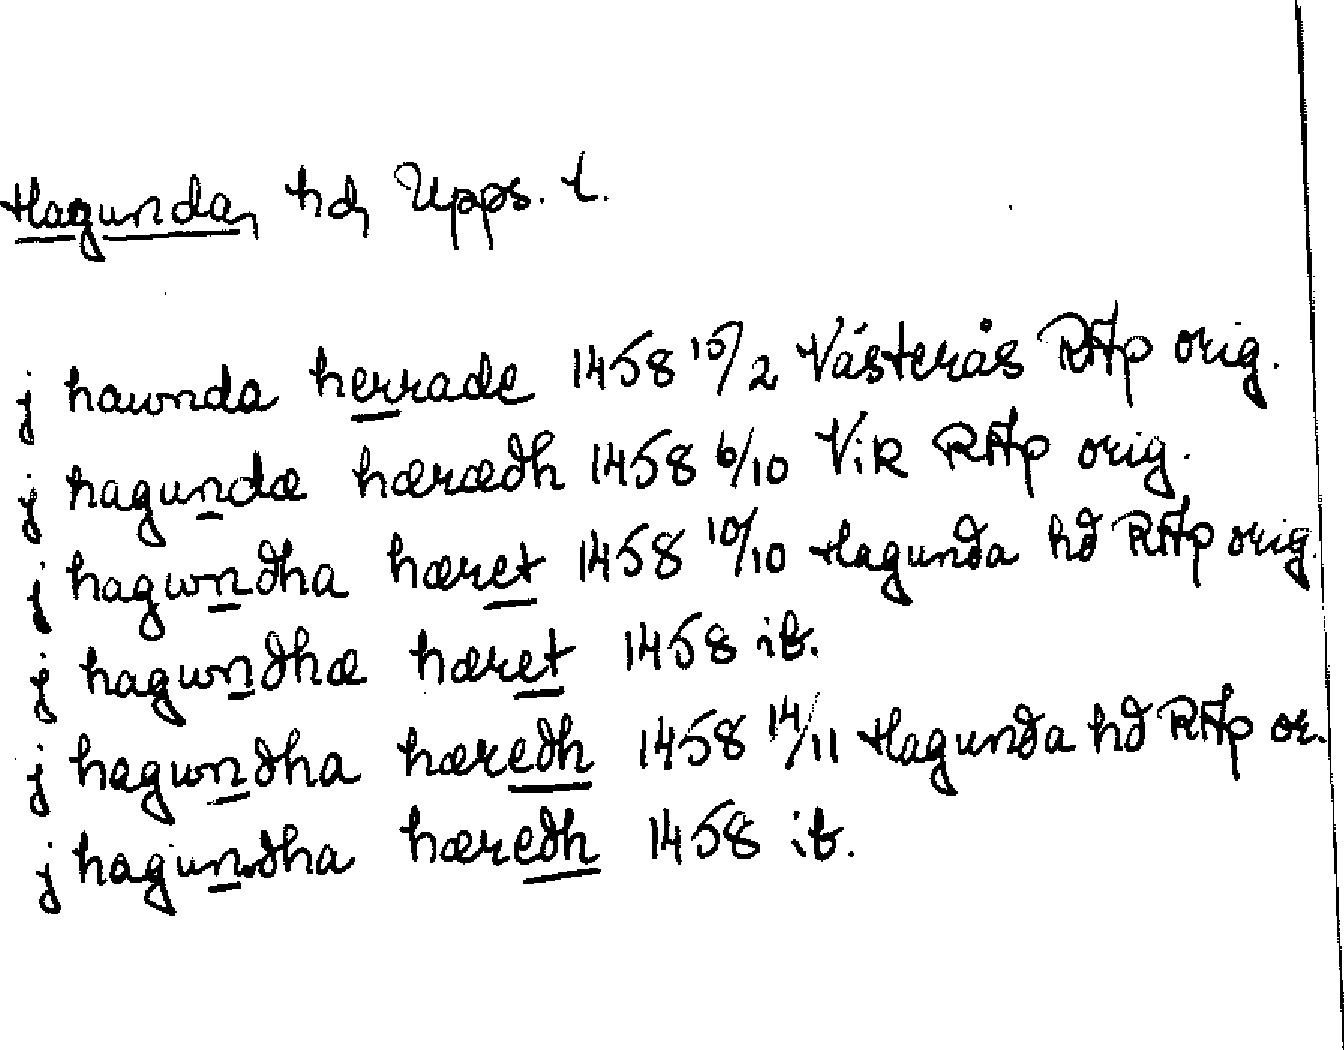 Hagunda, hd, Upps. l.
j hawnda herrade 1458 15/2 Västerås RAp orig.
j hagunda hærædh 1458 6/10 Vik RAp orig.
j hagwndha hæret 1458 10/10 Hagunda hd RAp orig.
j hagwndhæ hæret 1458 ib.
j hagwndha hæredh 1458 14/11 Hagunda hd RAp or.
j hagundha hæredh 1458 ib.